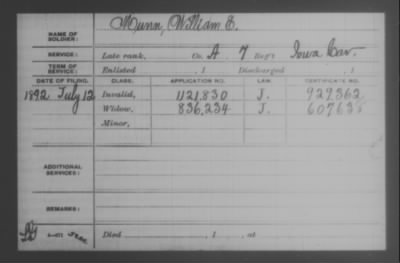 NAME OF SOLDIER: Munn, William E.
SERVICE: Late rank, Co. A 7 Reg't Iowa Cav.
TERM OF SERVICE: Enlisted , 1 Discharged , 1
DATE OF FILING. CLASS. APPLICATION NO. LAW. CERTIFICATE NO.
1892 July 12 Invalid, 1121,830 J. 929362
Widow, 836,234 J.
Minor,
ADDITIONAL SERVICES:
REMARKS:
Died , 1 , at